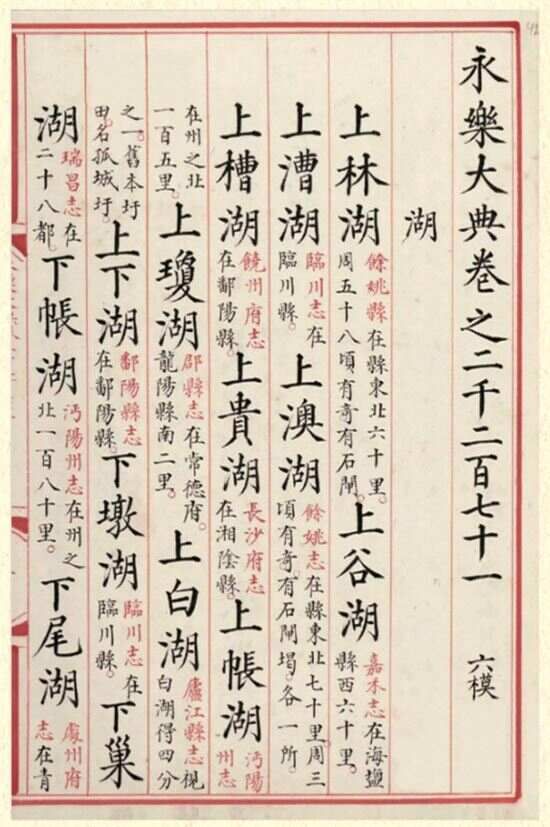 永樂大典卷之二千二百七十一 六模
湖
上林湖 餘姚縣在縣東北六十里。周五十八頃有奇有石閘。上谷湖 嘉禾志在海鹽縣西六十里。
上漕湖 臨川志在臨川縣。上澳湖 餘姚志在縣東北七十里。周三頃有奇。有石閘堨。各一所
上槽湖 饒州府志在鄱陽縣。上貴湖 長沙府志在湘陰縣。上帳湖 沔陽州志
在州之北一百五里。上瓊湖 郡縣志在常德府。龍陽縣南二里。上白湖 廬江縣志視白湖得四分
之一。舊本圩田名孤城圩。上下湖 鄱陽縣志在鄱陽縣。下墩湖 臨川志在臨川縣。下巢
湖 瑞昌志在二十八都。下帳湖 沔陽州志在州之北一百八十里。下尾湖 處州府志在青